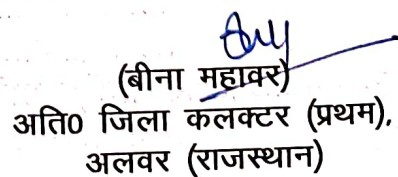 (बीना महावर)
अति0 जिला कलक्टर (प्रथम),
अलवर (राजस्थान)